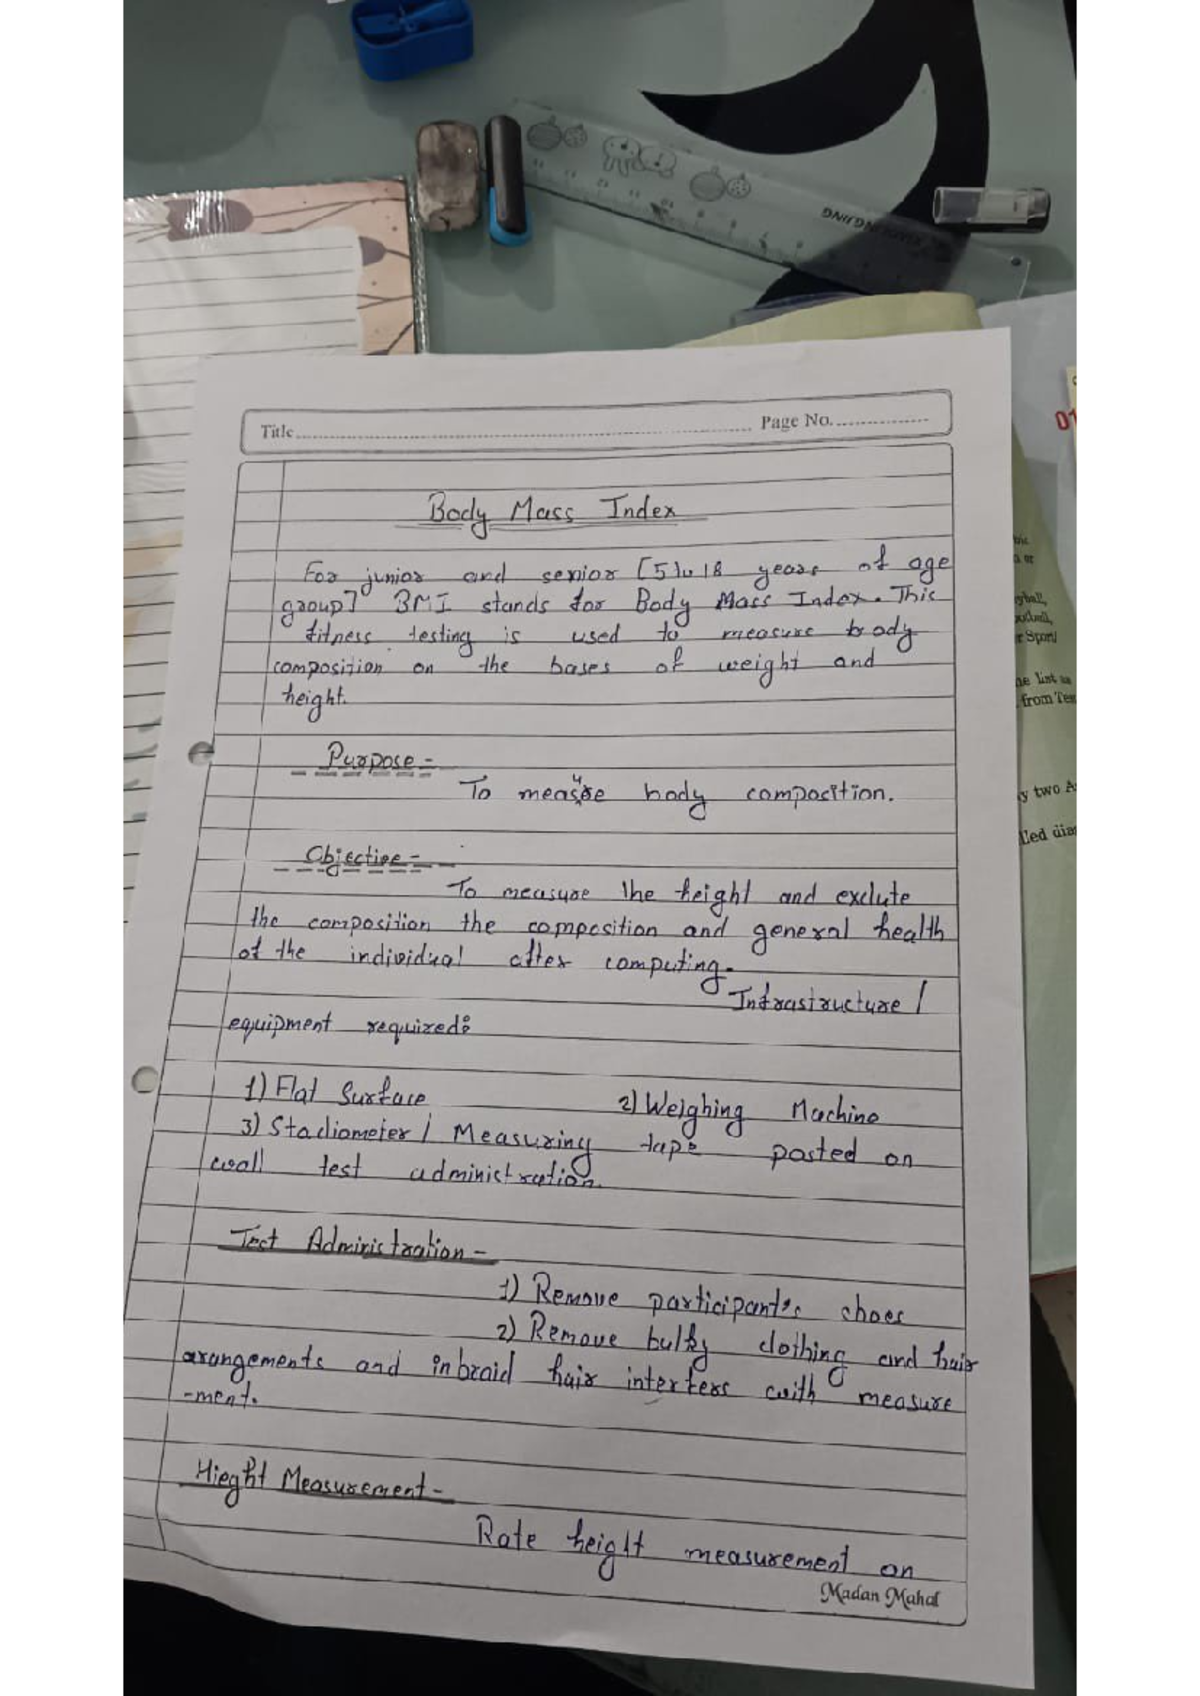 XIANGLONGJING
Title
Page No.
01
Body Mass Index
For junior and senior [5 to 18 years of age
group] BMI stands for Body Mass Index. This
fitness testing is used to measure body
composition on the bases of weight and
height.
Purpose -
To measure body composition.
Objective -
To measure the height and exclute
the composition the composition and general health
of the individual after computing.
Infrastructure /
equipment required:
1) Flat Surface 2) Weighing Machine
3) Stadiometer / Measuring tape pasted on
wall test administration.
Test Administration -
1) Remove participant's shoes
2) Remove bulky clothing and hair
arangements and in braid hair interfers with measure
-ment.
Hieght Measurement -
Rate height measurement on
Madan Mahal
or
r Sport
from Tes
y two A